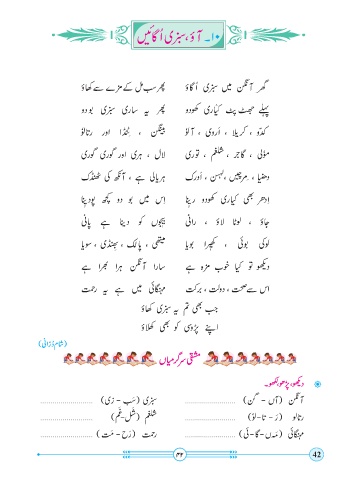 ۱۰۔ آؤ، سبزی اُگائیں
گھر آنگن میں سبزی اُگاؤ پھر سب مل کے مزے سے کھاؤ
پہلے جھٹ پٹ کیاری کھودو پھر یہ ساری سبزی بو دو
کدّو ، کریلا ، اُروی ، آلو بینگن ، بُنڈا اور رتالو
مولی ، گاجر ، شلغم ، توری لال ، ہری اور گوری گوری
دھنیا ، مرچیں ، لہسن ، اُدرک ہریالی ہے ، آنکھ کی ٹھنڈک
اِدھر بھی کیاری کھودو رینا اِس میں بو دو کچھ پودینا
جاؤ ، لوٹا لاؤ ، رانی بیجوں کو دینا ہے پانی
لوکی بوئی ، کھیرا بویا میتھی ، پالک ، بھنڈی ، سویا
دیکھو تو کیا خوب مزہ ہے سارا آنگن ہرا بھرا ہے
اس سے صحت ، دولت ، برکت مہنگائی میں ہے یہ رحمت
جب بھی تم یہ سبزی کھاؤ
اپنے پڑوسی کو بھی کھلاؤ
مشقی سرگرمیاں
دیکھو، پڑھو، لکھو۔
آنگن (آں - گَن) .................... سبزی (سَب - زی) ....................
رتالو (رَ - تا - لؤ) .................... شلغم (شَل - غَم) ....................
مہنگائی (مَہں - گا - ئی) .................... رحمت (رَح - مَت) ....................
۴۲
42